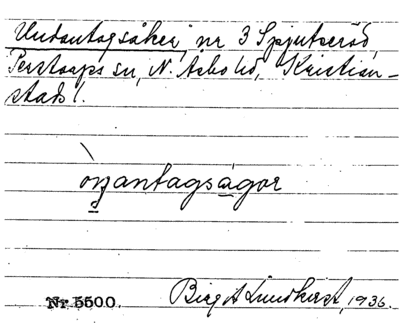 Undantagsåker, nr 3 Spjutseröd,
Perstorps sn, N. Åsbo hd, Kristian-
stads l.
Nr 5500.
Birgit Lundkvist, 1936.